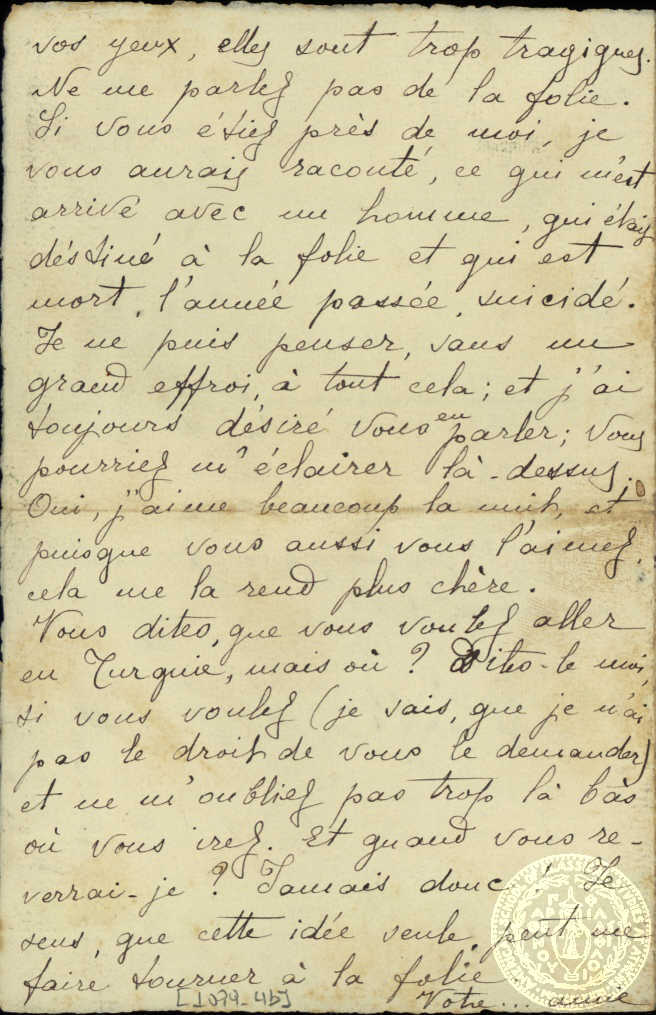 vos yeux, elles sont trop tragiques.
Ne me parlez pas de la folie.
Si vous étiez près de moi, je
vous aurais raconté, ce qui m'est
arrivé avec un homme, qui était
déstiné à la folie et qui est
mort, l'année passée, suicidé.
Je ne puis penser, sans un
grand effroi, à tout cela; et j'ai
toujours désiré vous en parler; vous
pourriez m'éclairer là-dessus.
Oui, j'aime beaucoup la nuit, et
puisque vous aussi vous l'aimez,
cela me la rend plus chère.
Vous dites, que vous voulez aller
en Turquie, mais où? Dites-le moi,
si vous voulez (je sais, que je n'ai
pas le droit de vous le demander)
et ne m'oubliez pas trop là bàs
où vous irez. Et quand vous re-
verrai-je? Jamais donc! Je
sens, que cette idée seule, peut me
faire tourner à la folie.
Votre... amie
[1079-4b]